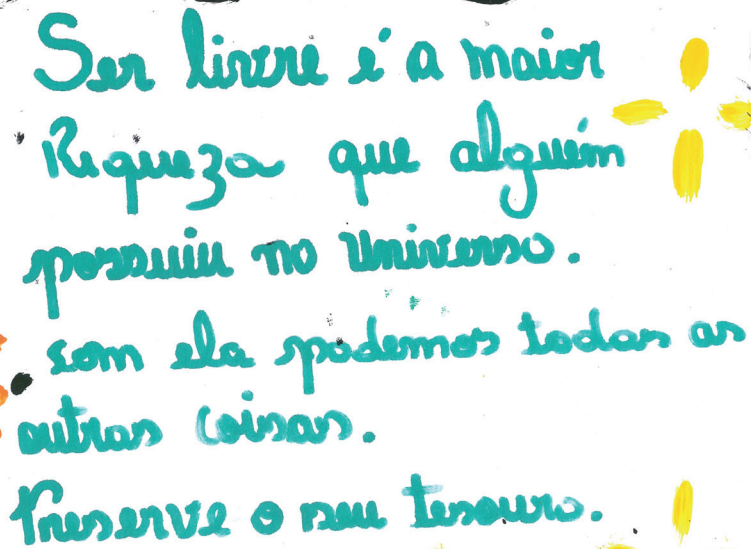 Ser livre é a maior
Riqueza que alguém
possuiu no Universo.
com ela podemos todas as
outras coisas.
Preserve o seu tesouro.